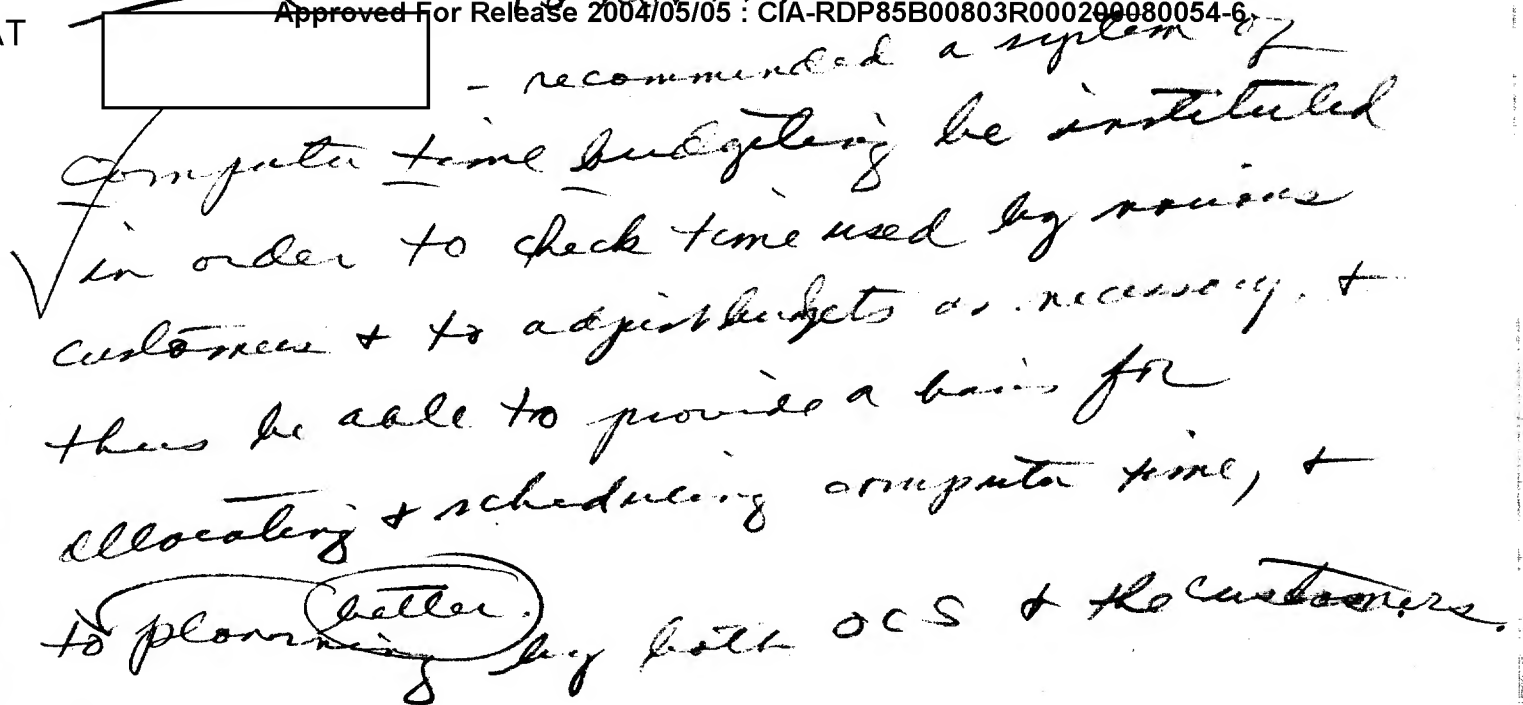 Approved For Release 2004/05/05 : CIA-RDP85B00803R000200080054-6
AT
- recommended a system of
computer time budgeting be instituted
in order to check time used by various
customers + to adjust budgets as necessary, +
thus be able to provide a basis for
allocating + scheduling computer time, +
to planning better by both OCS + the customers.